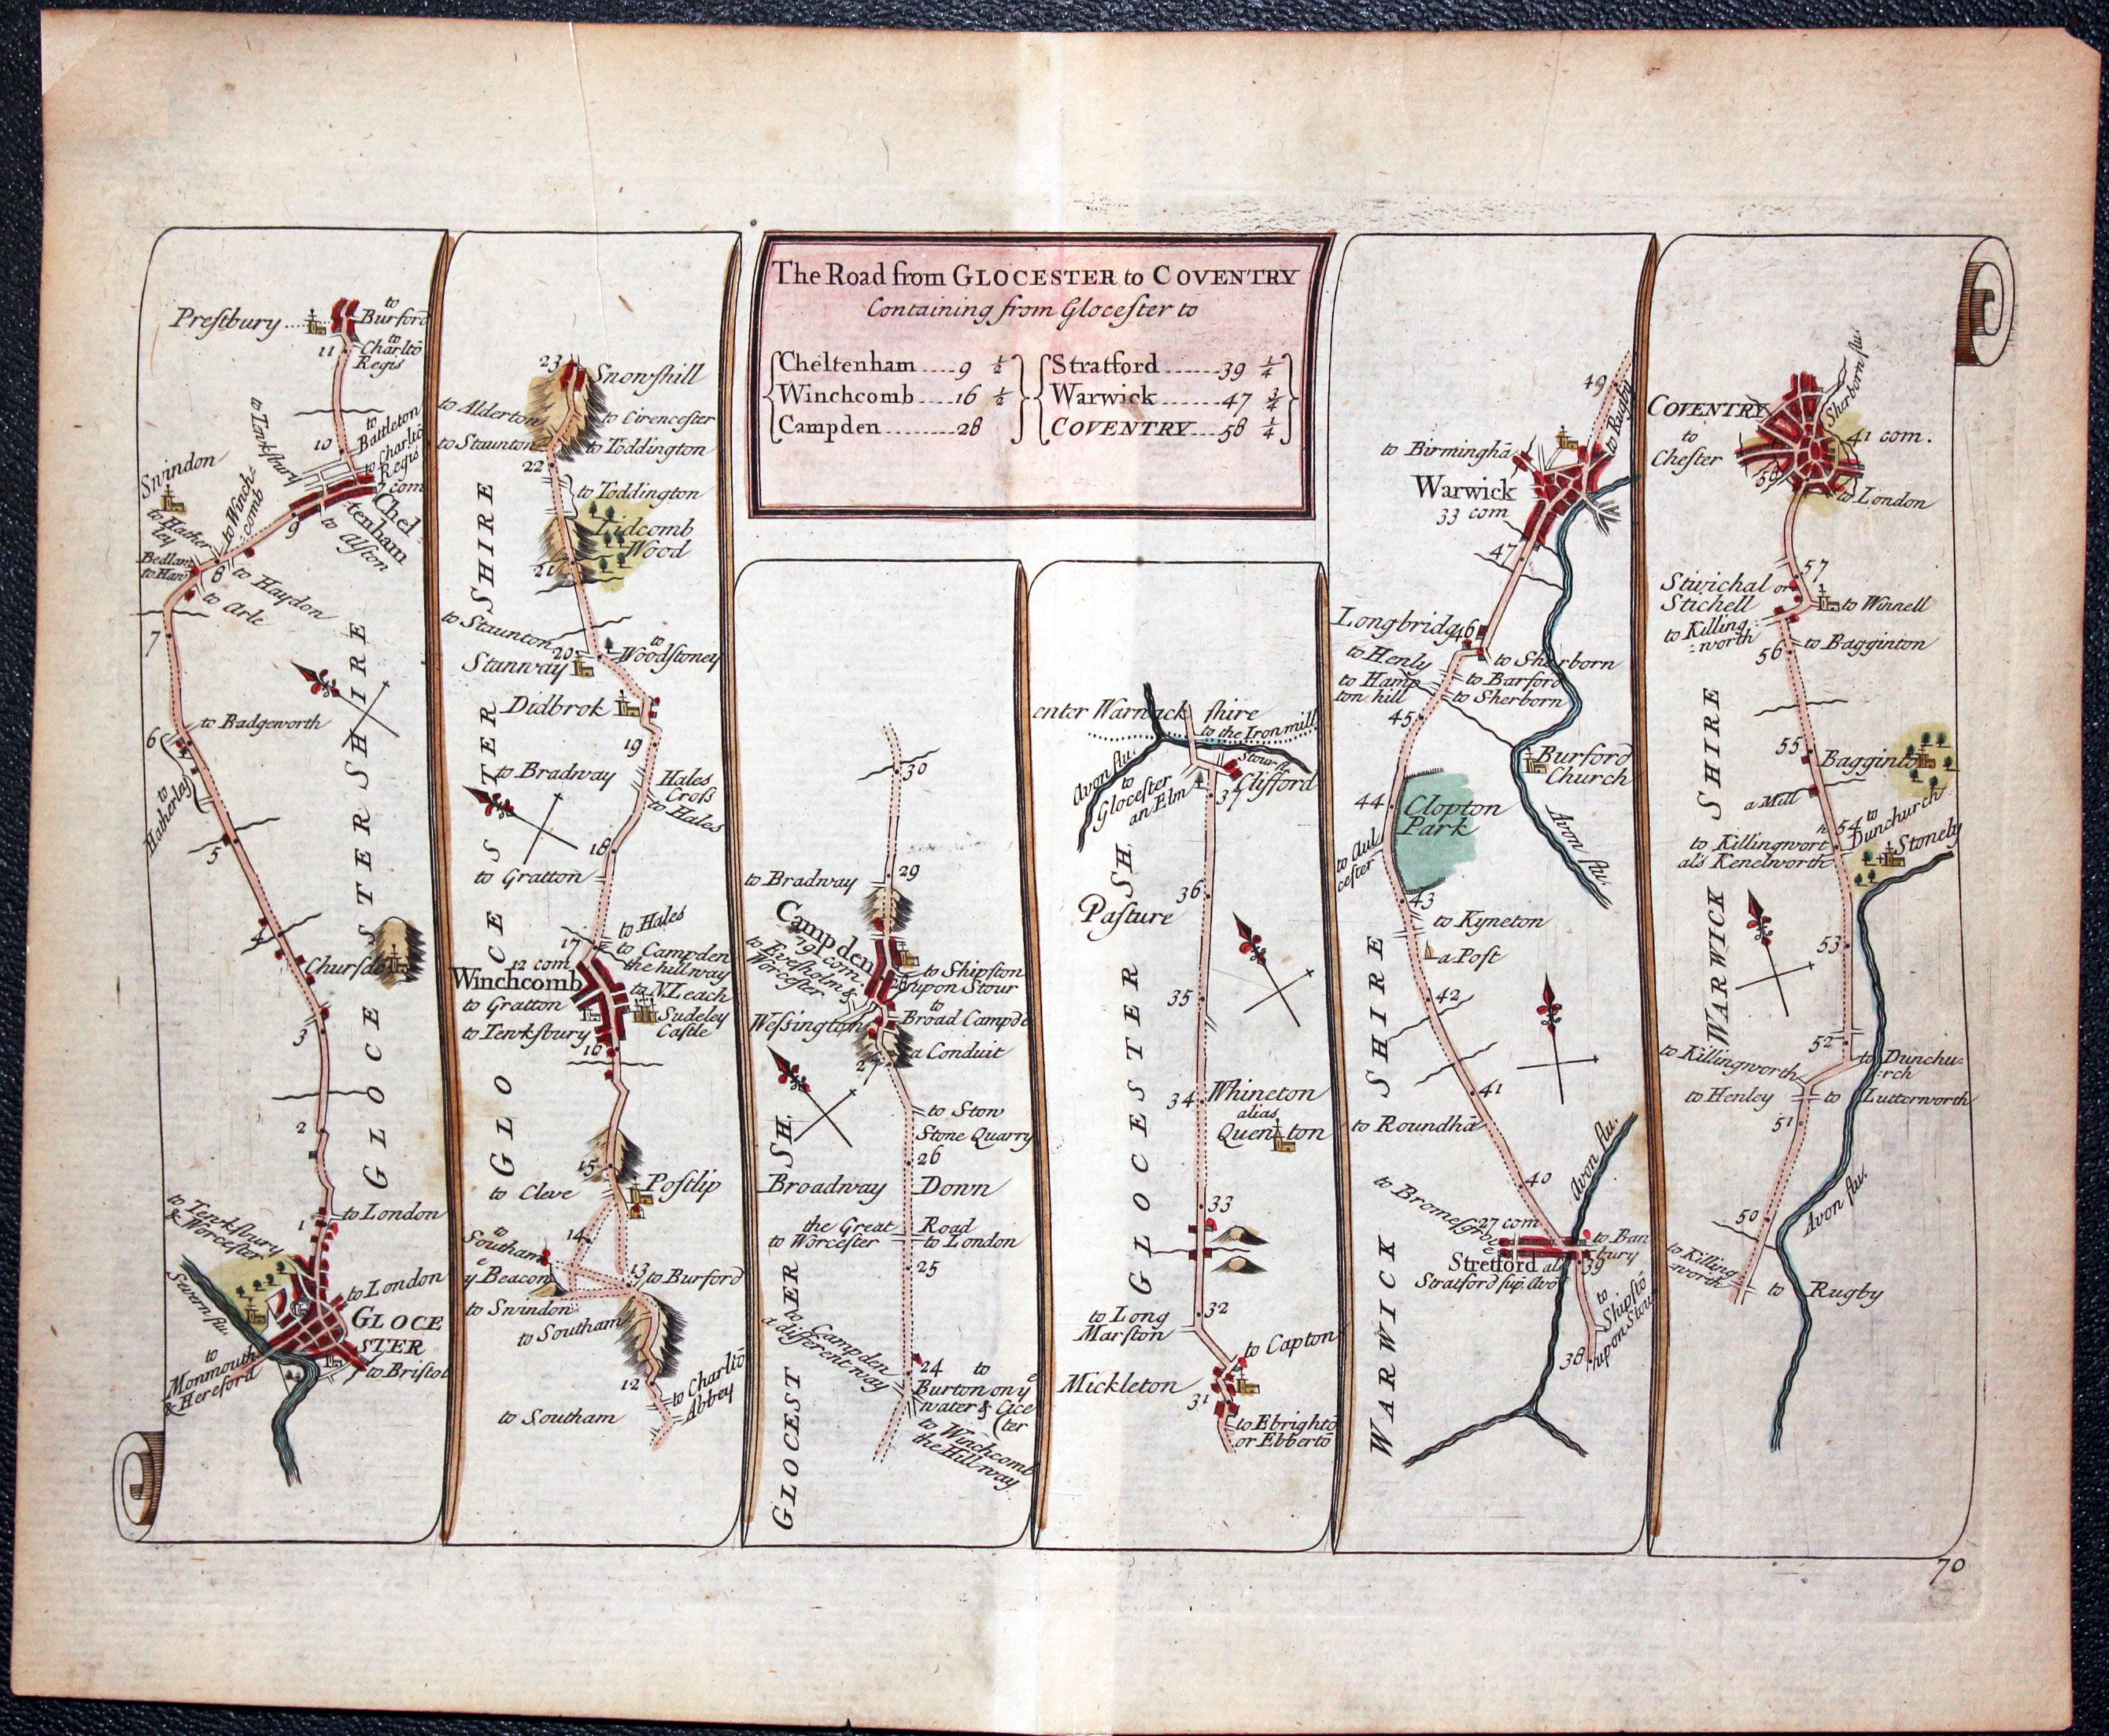 The Road from GLOCESTER to COVENTRY
Containing from Gloceſter to
Cheltenham 9 ½
Winchcomb 16 ½
Campden 28
Stratford 39 ¼
Warwick 47 ¾
COVENTRY 58 ¼
Preſtbury
to Burford
11
to Charltō Regis
to Battleton
10
to Charltō Regis
to Tewkſbury
Swindon
5 com
to Winch-
comb
Chel
tenham
9
to Alſton
to Hather
ley
Bedlam
to Haw
8
to Haydon
to Arle
7
to Badgeworth
6
to Hatherley
5
4
Churſdō
3
2
to London
1
to Tewkſbury
& Worceſter
Severn flu.
to London
GLOCE
STER
to Monmouth
& Hereford
to Briſtol
GLOCESTERSHIRE
23
Snowſhill
to Alderton
to Cirenceſter
to Staunton
to Toddington
22
to Toddington
Lidcomb
Wood
21
to Staunton
20
to Woodſtoney
Stanway
Didbrok
19
to Bradway
Hales
Croſs
to Hales
18
to Gratton
to Hales
17
to Campden
the hillway
12 com
Winchcomb
to N.Leach
to Gratton
Sudeley
Caſtle
to Tewkſbury
16
15
to Cleve
Poſtlip
14
to Southam
yᵉ Beacon
13
to Burford
to Swindon
to Southam
12
to Charltō
Abbey
to Southam
GLOCESTER SHIRE
30
29
to Bradway
Campden
19 com.
to Eveſholm &
Worceſter
28
to Shipſton
upon Stour
to
Broad Campdē
Weſsington
a Conduit
27
to Ston
Stone Quarry
26
Broadway Down
the Great Road
to Worceſter to London
25
to Campden
a different way
24
to
Burton on yᵉ
water & Cice
(ter
to Winchcomb
the Hill way
GLOCESTER SH.
enter Warwick ſhire
to the Iron mill
Avon flu.
Stour fl.
to
Gloceſter
an Elm
Clifford
37
36
Paſture
35
34
Whineton
alias
Quenton
33
32
to Long
Marſton
to Capton
Mickleton
31
to Ebrightō
or Ebbertō
GLOCESTER SH.
49
to Rugby
to Birminghā
Warwick
33 com
47
Longbridg
46
to Henly
to Sherborn
to Hamp
ton hill
to Barford
to Sherborn
45
Burford
Church
44
Clopton
Park
to Aul
ceſter
Avon flu.
43
to Kyneton
a Poſt
42
41
to Roundhā
40
Avon flu.
to Bromeſgrove
27 com
to Ban
bury
Stretford al
39
Stratford ſup. Avō
to
Shipſtō
upon Stour
38
WARWICK SHIRE
COVENTRY
Sherborn flu.
41 com.
to
Cheſter
58
to London
57
Stivichal or
Stichell
to Winnell
to Killing
worth
to Bagginton
56
55
Baggintō
a Mill
54
to
Dunchurch
to Killingwort
als Kenelworth
Stonely
53
52
to Killingworth
to Dunchu
rch
to Henley
to Lutterworth
51
50
Avon flu.
to Killing
worth
to Rugby
WARWICK SHIRE
70